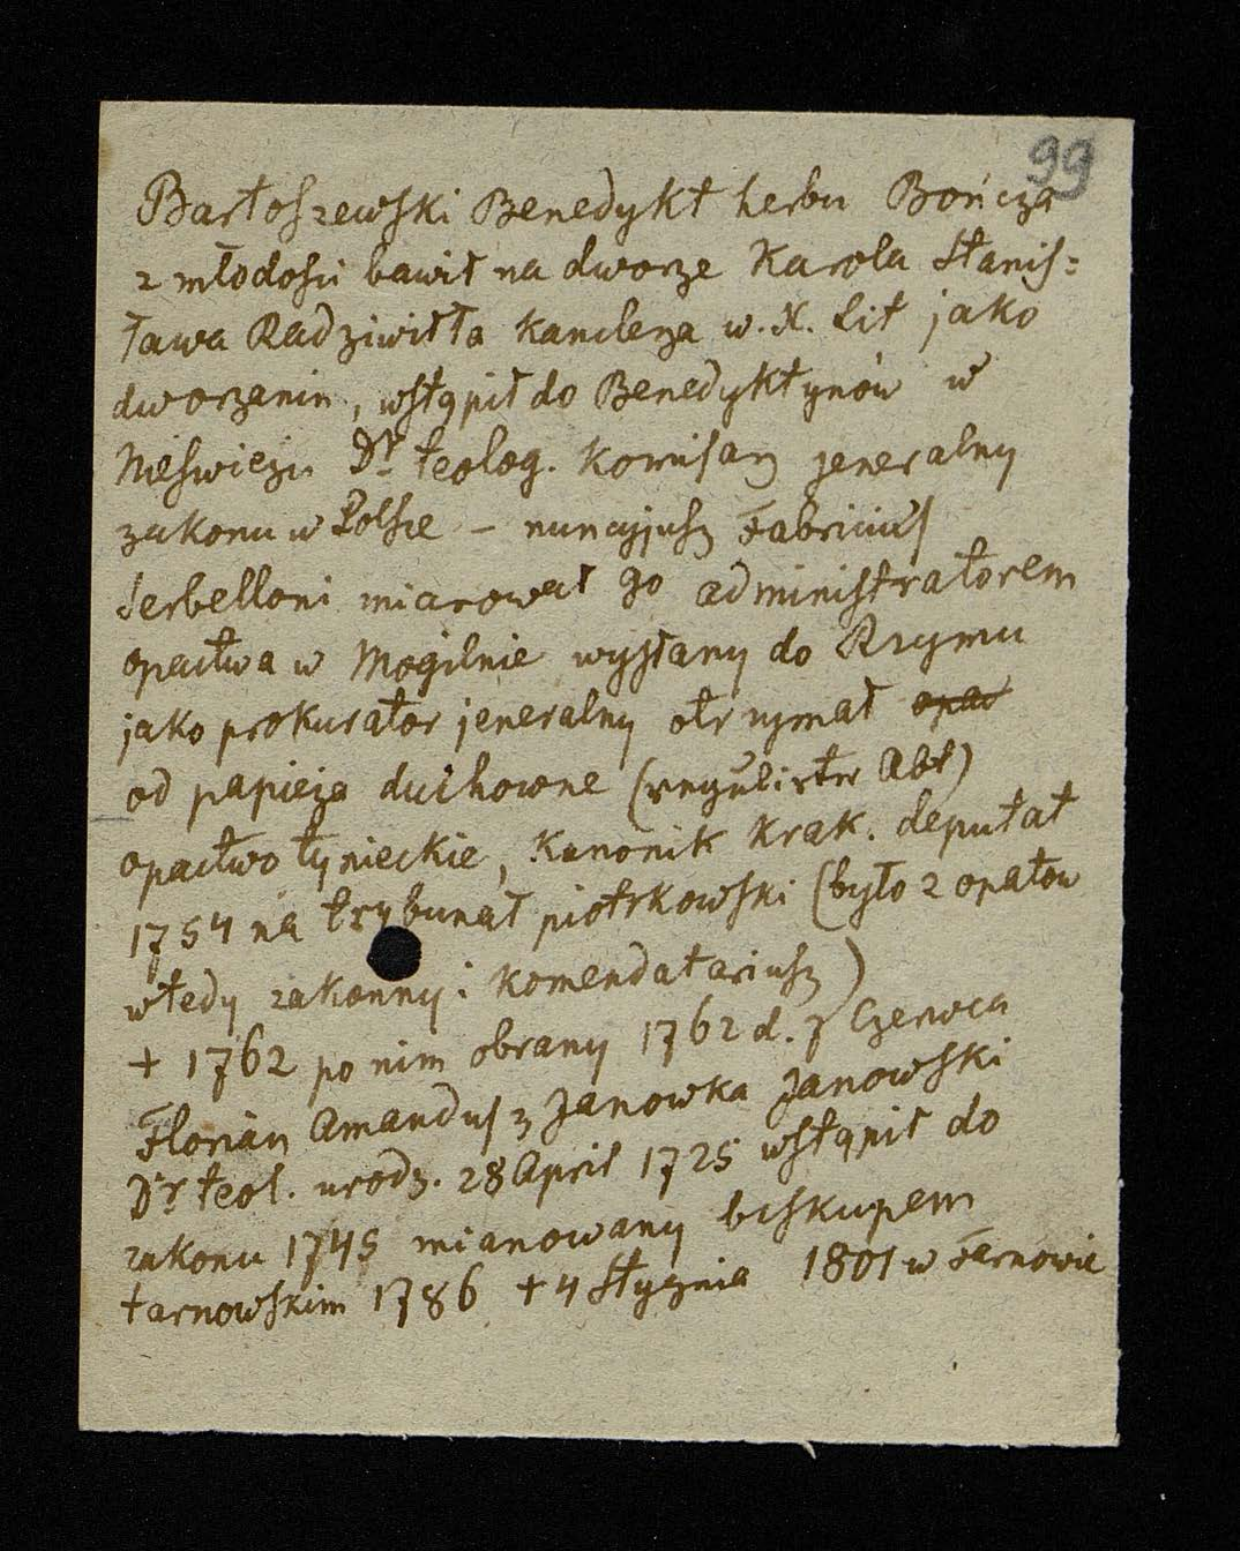 99
Bartoszewski Benedykt herbu Bończa
z młodości bawił na dworze Karola Stanis=
ława Radziwiłła kanclerza w. X. Lit jako
dworzanin, wstąpił do Benedyktynów w
Nieświeżu Dr teolog. komisarz jeneralny
zakonu w Polsce – nuncyjusz Fabricius
Serbelloni mianował go administratorem
opactwa w Mogilnie wysłany do Rzymu
jako prokurator jeneralny otrzymał opac
od papieża duchowne (regulirter Abt)
opactwo tynieckie, Kanonik Krak. deputat
1754 na trybunał piotrkowski (było 2 opatów
wtedy zakonny i komendatariusz)
+ 1762 po nim obrany 1762 d. 7 Czerwca
Florian Amandus z Janowka Janowski
Dr teol. urodz. 28 April 1725 wstąpił do
zakonu 1745 mianowany biskupem
tarnowskim 1786 + 4 Stycznia 1801 w Tarnowie